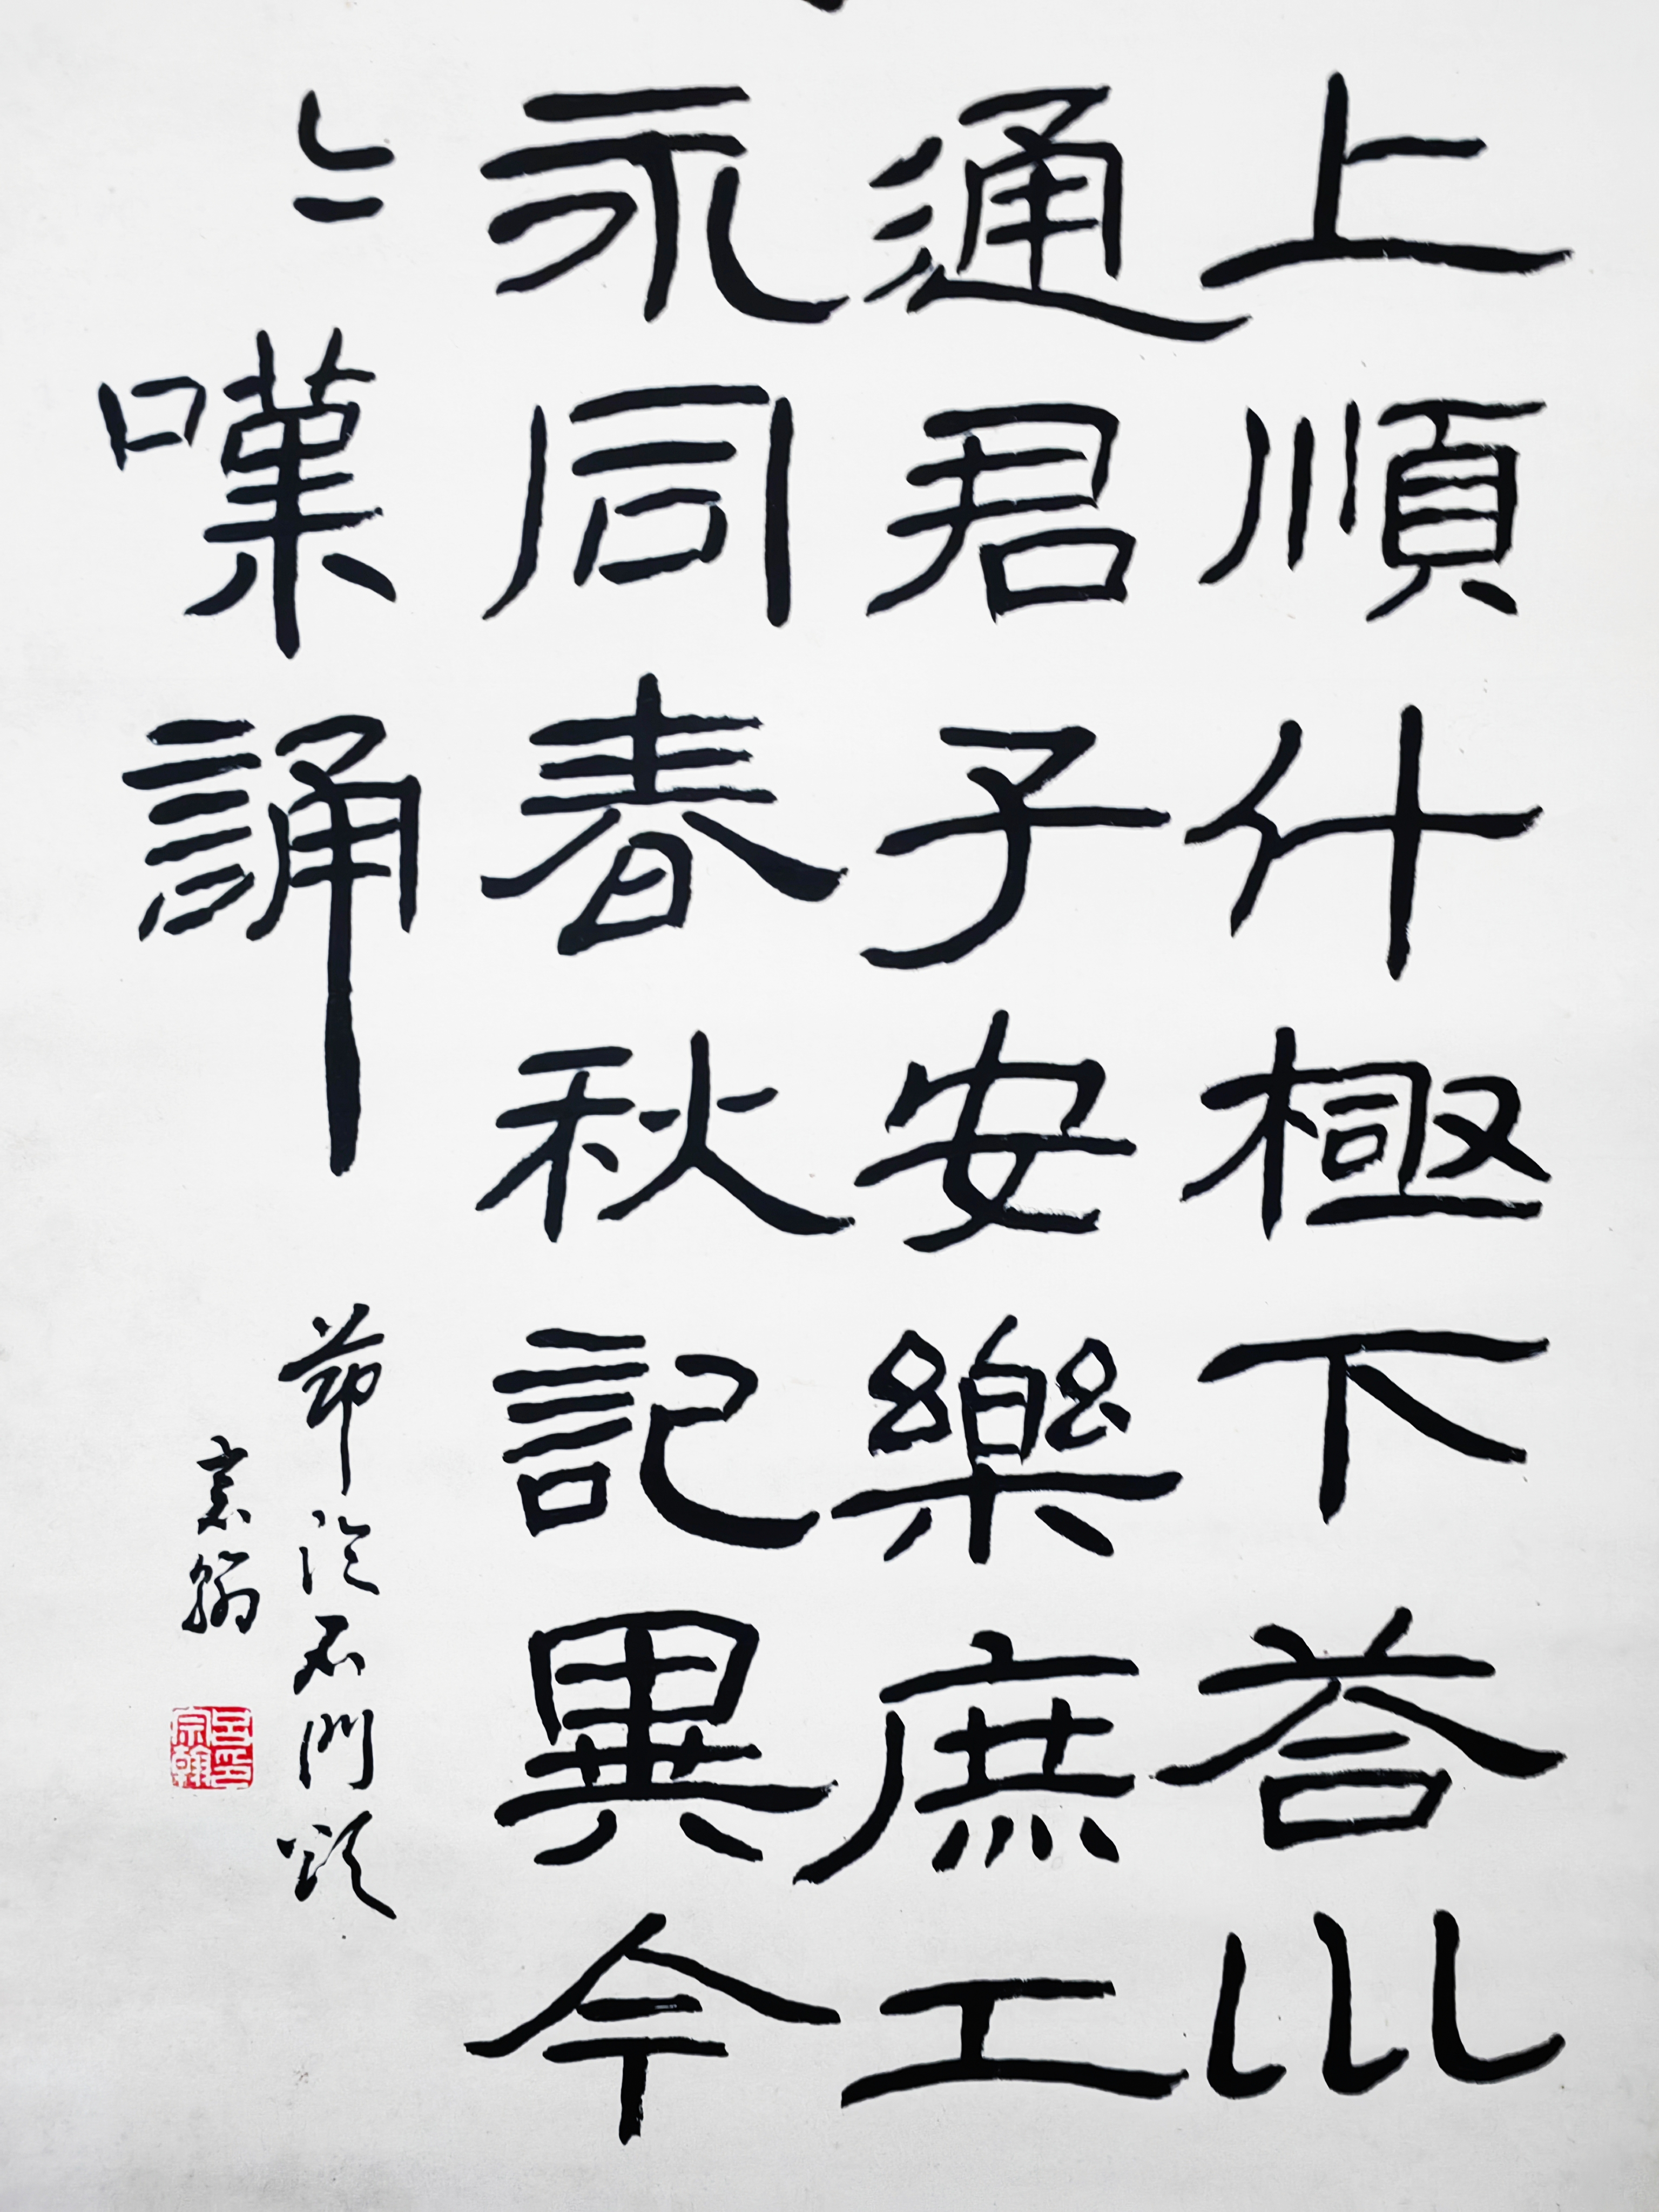 上順什極下荅巛
通君子安樂庶工
永同春秋記異今
〻嘆誦
節臨石門頌
宗翰
呂印宗翰